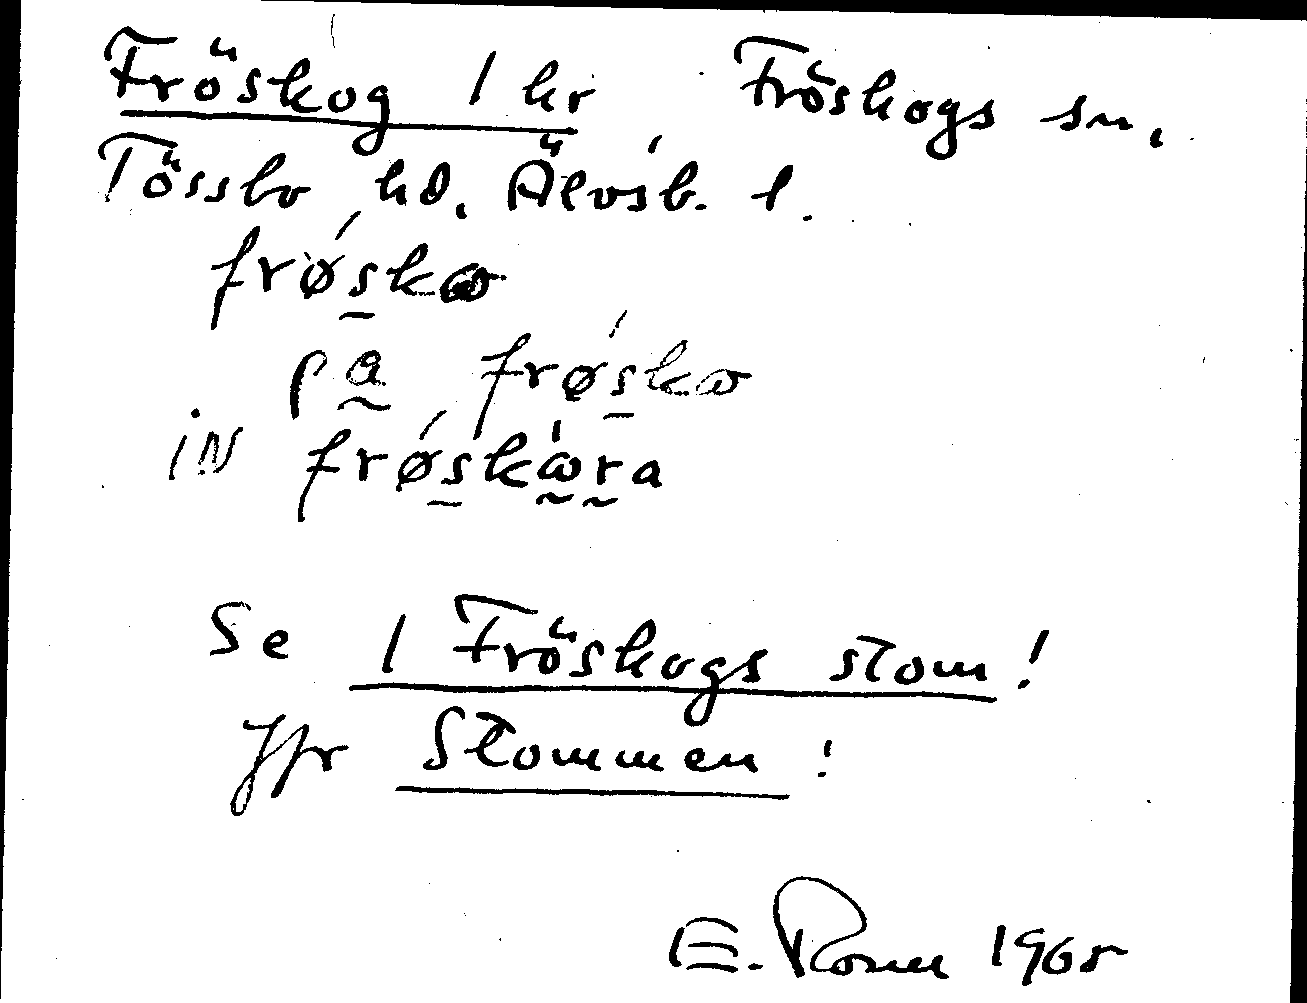 Fröskog 1 hr Fröskogs sn,
Tössbo hd. Älvsb. l.
frø̀s̠kω
pa̰ frø̀s̠kω
iN frø̀s̠kω̰r̰a
Se 1 Fröskogs stom!
Jfr Stommen!
E. Rosell 1965